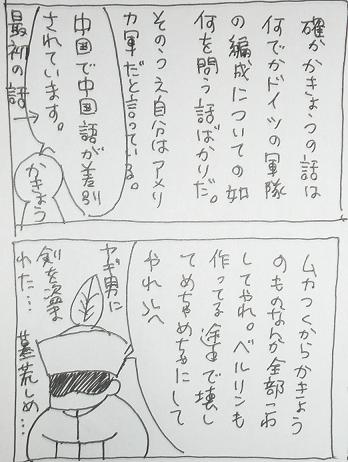 確かかきょうの話は
何でかドイツの軍隊
の編成についての如
何を問う話ばかりだ。
そのうえ自分はアメリ
カ軍だと言っている。
中国で中国語が差別
されています。
最初の話→
かきょう
ムカつくからかきょう
のものなんか全部こわ
してやれ。ベルリンも
作ってる途中で壊し
てめちゃめちゃにして
やれ
ヤギ男に
剣を盗ま
れた…
墓荒しめ…